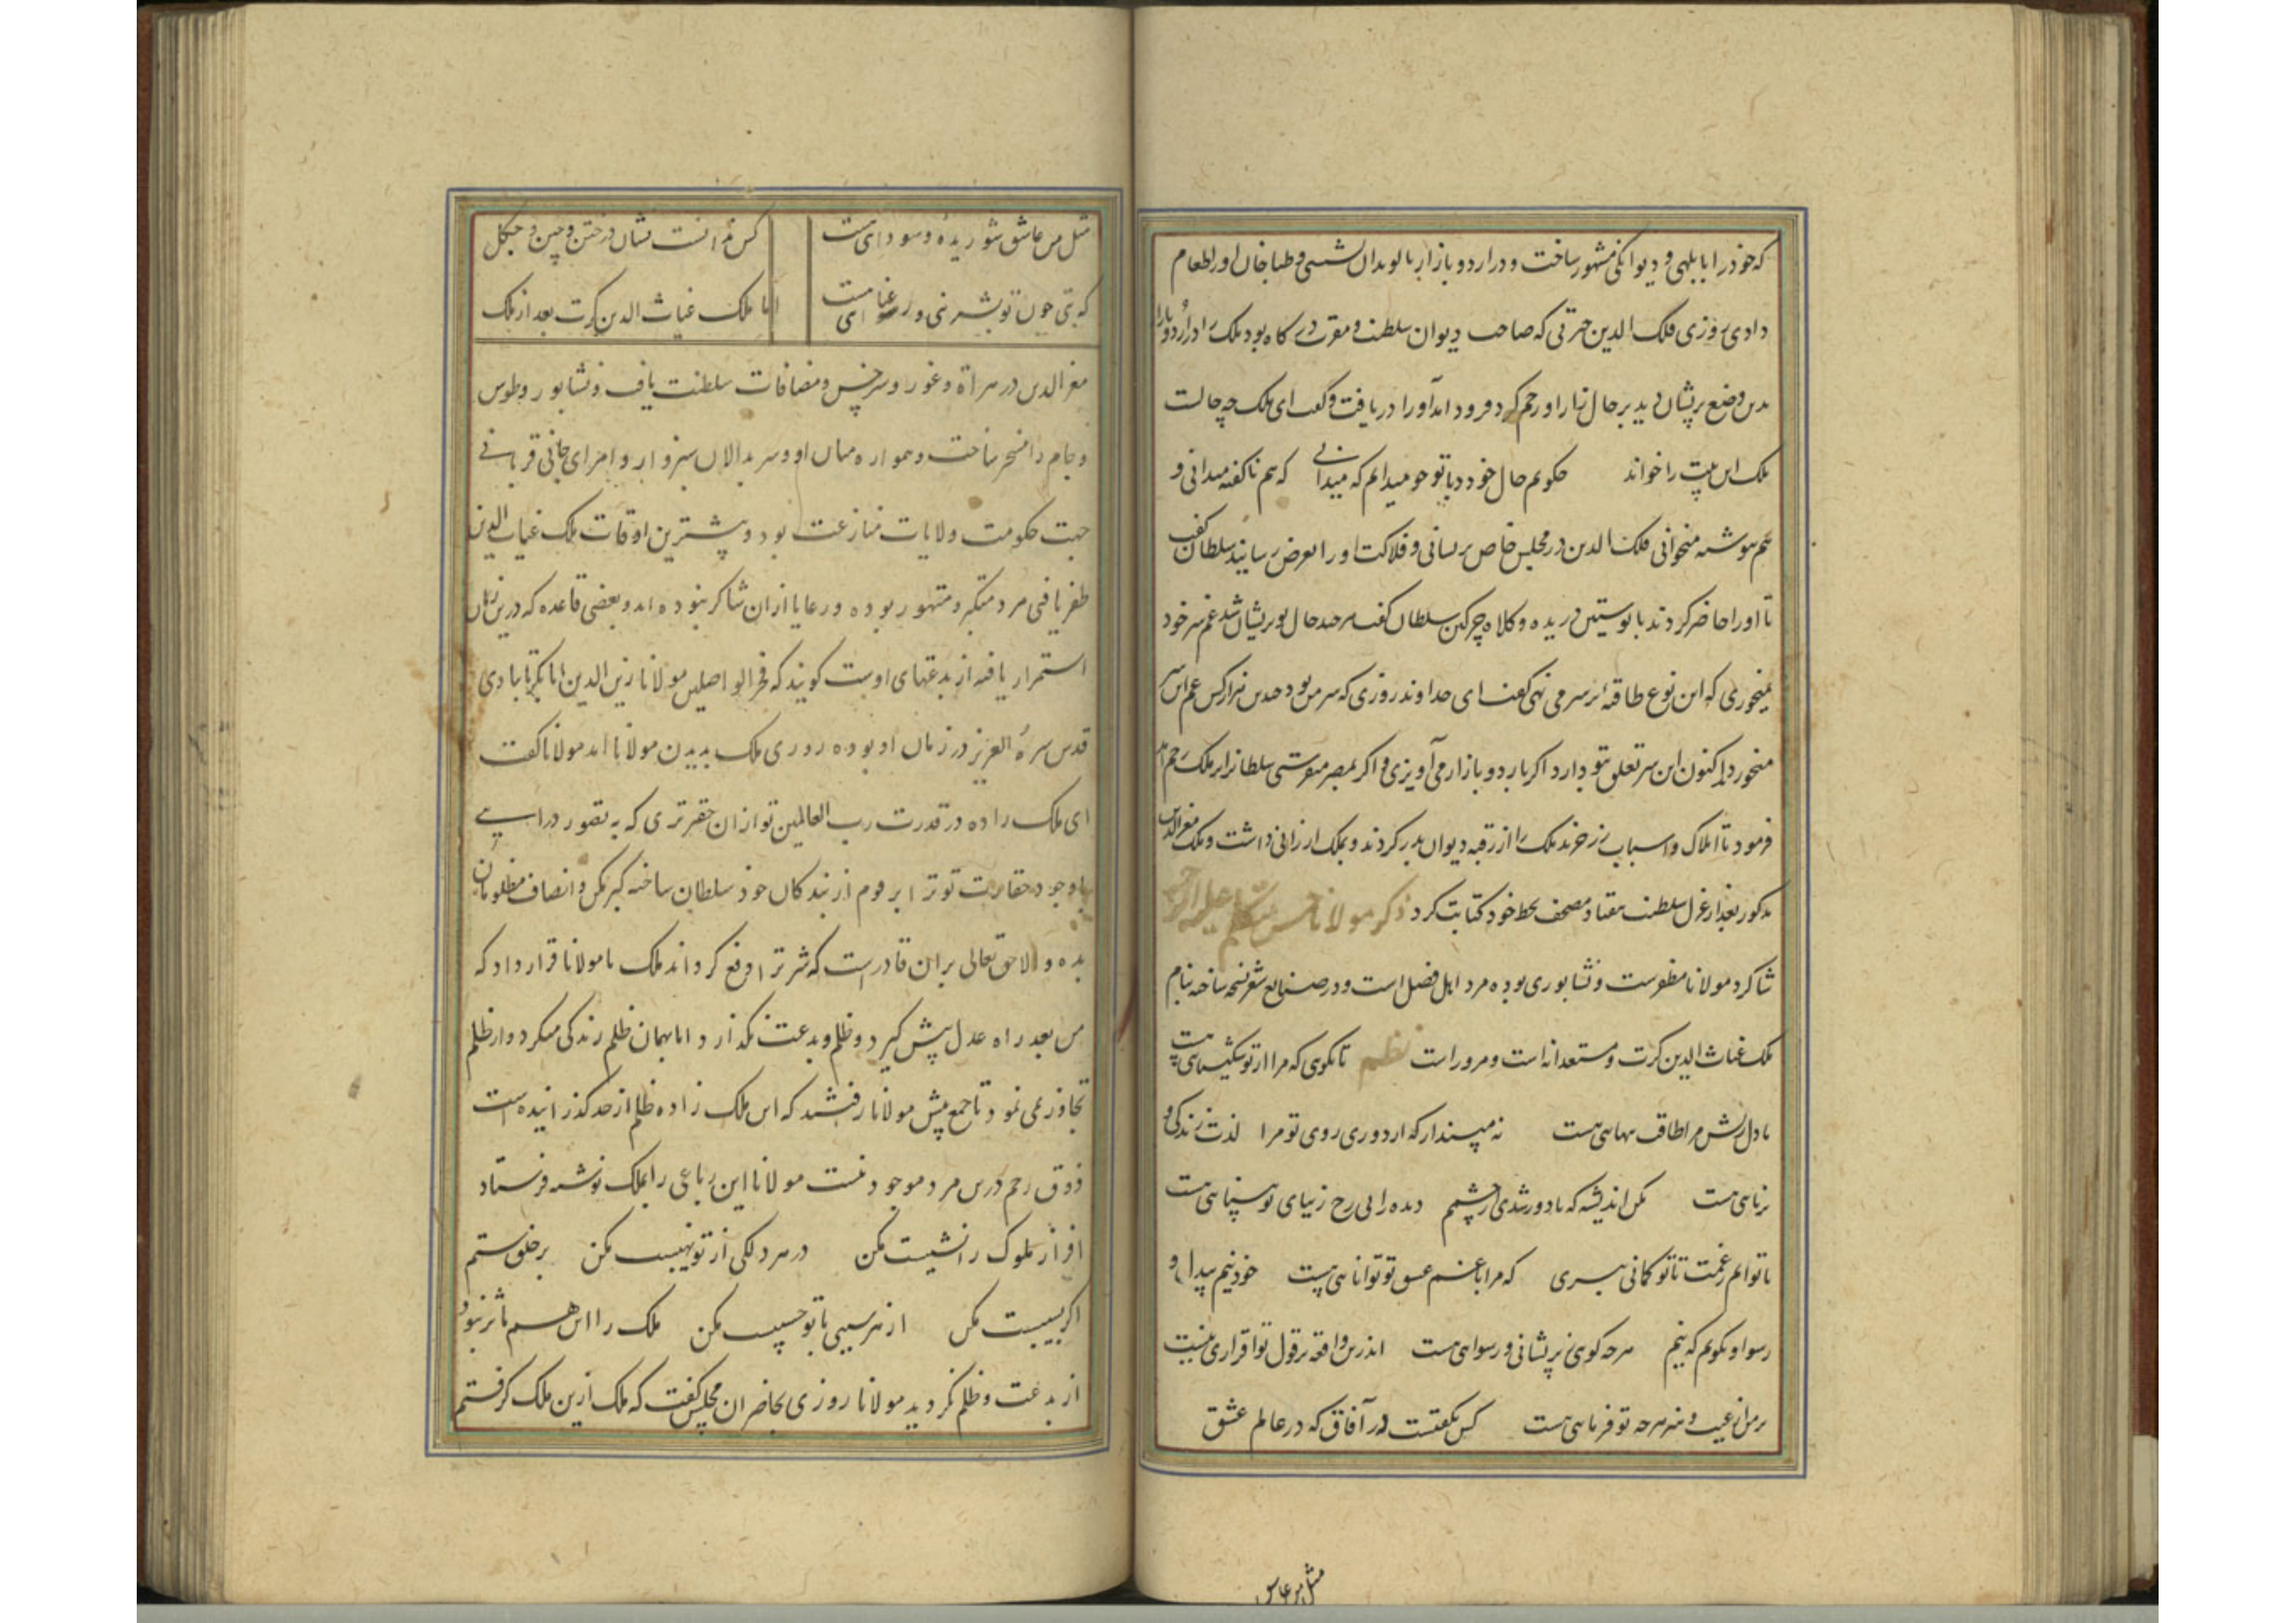 که خود را بابلهی و دیوانکی مشهور ساخت و در اردو بازار با لوندان نشستی و طباخان او را طعام
دادی روزی فلک الدین که صاحب دیوان سلطنت و مقرب درکاه بود ملک را در اردو بازار
بدین وضع پریشان دید بر حال زار او رحم کرد و فرود آمد و او را دریافت و کفت ای ملک چه حالست
ملک این بیت را خواند چکویم حال خود با تو چو میدانم که میدانی که هم ناکفته میدانی و
هم ننوشته میخوانی فلک الدین در مجلس خاص پریشانی و فلاکت او را بعرض رسانید سلطان کفت
تا او را حاضر کردند با پوستین دریده و کلاه چرکین سلطان کفت هر چند حال تو پریشان شد غم سر خود
نمیخوری که این نوع طاقیه بر سر می نهی کفت ای خداوند روزی که سر من بود چندین هزار کس غم این سر
میخوردند اکنون این سر تعلق بتو دارد اکر باردو بازار می آویزی و اکر بمصر میفرستی سلطانرا بر ملک رحم آمد
فرمود تا املاک و اسباب زرخرید ملک را از رقبه دیوان بدر کردند و بملک ارزانی داشت و ملک معزالدین
مذکور بعد از عزل سلطنت هفتاد مصحف بخط خود کتابت کرد ذکر مولانا حسن متکلم علیه الرحمه
شاکرد مولانا مظفرست و نشابوری بوده مرد اهل فضل است و در صنایع شعر نسخه ساخته بنام
ملک غیاث الدین کرت و مستعدانه است و مروراست نظم تا نکویی که مرا از تو شکیبایی هست
یا دل ریش مرا طاقت تنهایی هست نه مپندار که از دوری روی تو مرا لذت زندکی و
برنایی هست مکن اندیشه که تا دور شدی از چشمم دیده را بی رخ زیبای تو بینایی هست
ناتوانم ز غمت تا تو کمانی نبری که مرا با غم عشق تو توانایی هست خود نیم بیدل و
رسوا و نکویم که نیم هر چه کویی ز پریشانی و رسوایی هست اندرین واقعه بر قول تو اقراری نیست
بر من از غیب و هنر هر چه تو فرمایی هست کس نکفتست در آفاق که در عالم عشق
مثل من عاش
مثل من عاشق شوریده و سودایی هست کس ندانست نشان در ختن و چین و چکل
که بتی چون تو بشیرینی و رعنایی هست اما ملک غیاث الدین کرت بعد از ملک
معزالدین در هراة و غور و سرخس و مضافات سلطنت یافت و نشابور و طوس
و جام را مسخر ساخت و همواره میان او و سربدالان سبزوار و امرای جانی قربانی
جهت حکومت ولایات منازعت بود و بیشترین اوقات ملک غیاث الدین
ظفر یافتی مرد متکبر و متهور بوده و رعایا ازان شاکر نبوده اند و بعضی قاعده که درین زمان
استمرار یافته از بدعتهای اوست کویند که فخر الواصلین مولانا زین الدین ابابکر تایبادی
قدس سره العزیز در زمان او بوده روزی ملک بدیدن مولانا آمد مولانا کفت
ای ملک زاده در قدرت رب العالمین تو ازان حقیرتری که به تصور درایی
باوجود حقارت تو ترا بر قوم از بندکان خود سلطان ساخته کبر مکن و انصاف مظلومان
بده و الا حق تعالی بران قادرست که شر ترا دفع کرداند ملک با مولانا قرار داد که
من بعد راه عدل پیش کیرد و ظلم و بدعت بکذارد اما بهمان ظلم زندکی میکرد و از ظلم
تجاوز نمی نمود تا جمع پیش مولانا رفتند که این ملک زاده ظلم از حد کذرانیده است
ذوق رحم درین مرد موجود نیست مولانا این رباعی را بملک نوشته فرستاد
افراز ملوک را نشیبست مکن در هر دلکی از تو نهیبست مکن بر خلق ستم
اکر بسیبست مکن از هر سیبی با تو حسیبست مکن ملک را این هم مؤثر نبود و
از بدعت و ظلم نکردید مولانا روزی بحاضران مجلس کفت که ملک ازین ملک کرفتم